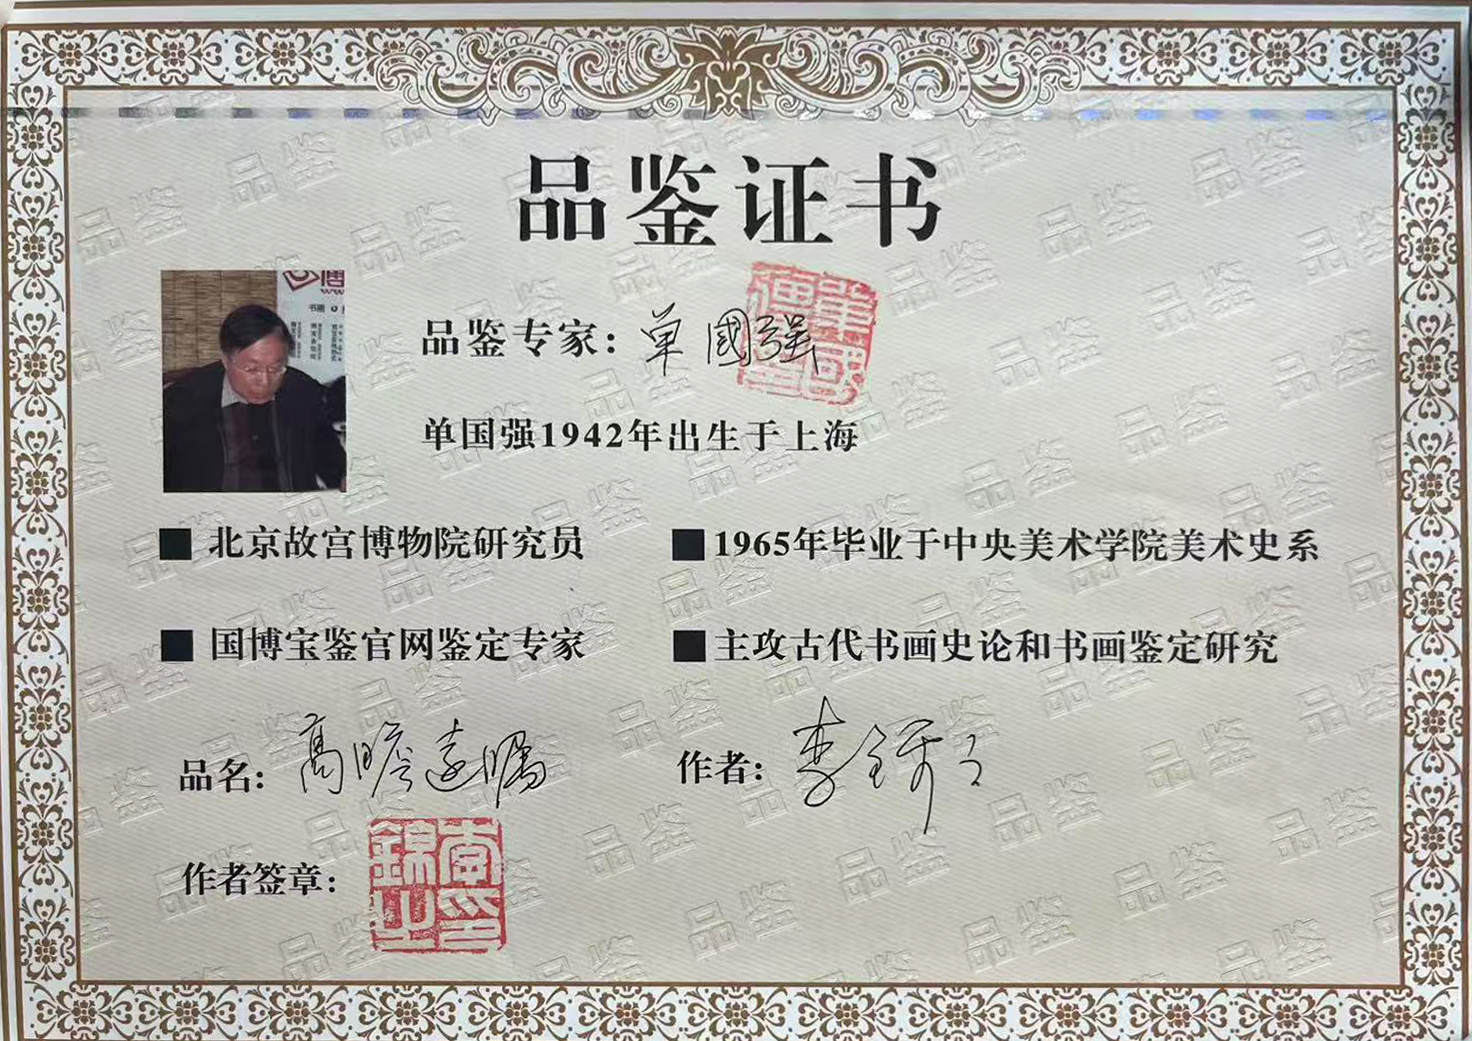 品鉴证书
品鉴专家：单國强
单国强1942年出生于上海
■ 北京故宫博物院研究员
■ 1965年毕业于中央美术学院美术史系
■ 国博宝鉴官网鉴定专家
■ 主攻古代书画史论和书画鉴定研究
品名：高瞻远瞩
作者：李锦之
作者签章：
李锦之印